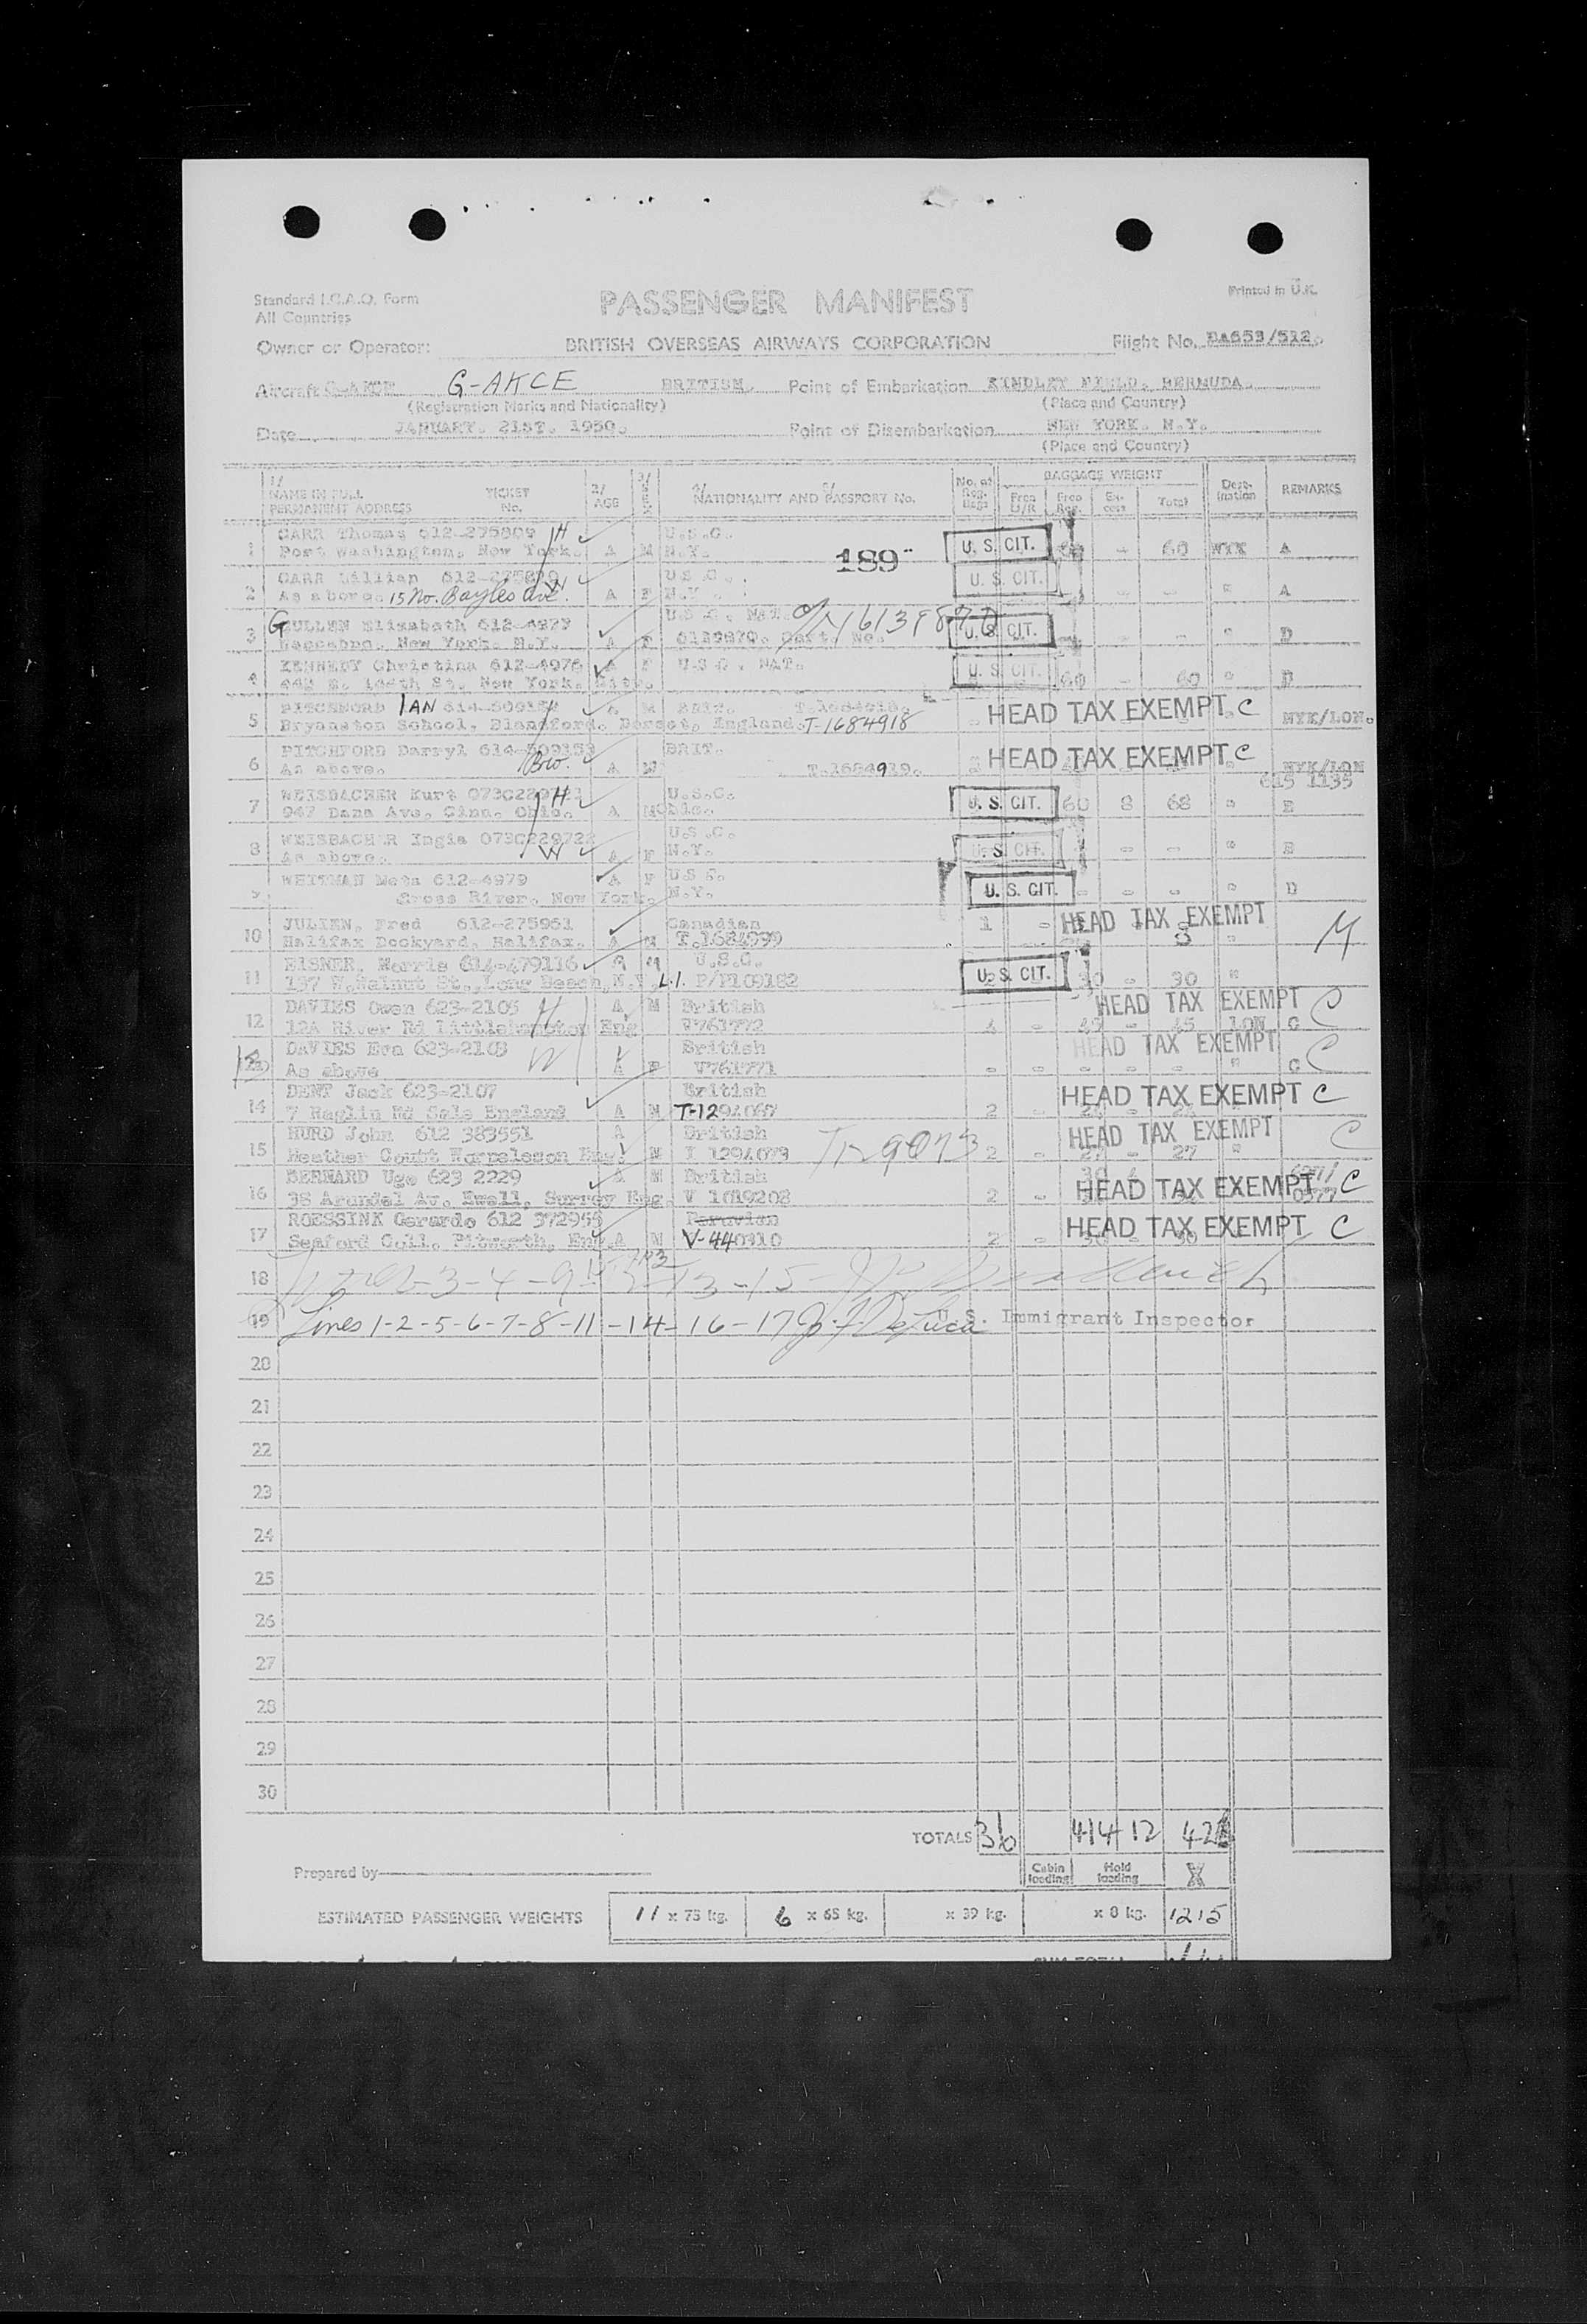 Standard I.C.A.O. Form
All Countries
PASSENGER MANIFEST
Printed in U.K.
Owner or Operator:
BRITISH OVERSEAS AIRWAYS CORPORATION
Flight No. BA653/512.
Aircraft G-AKCE G-AKCE BRITISH. Point of Embarkation KINDLEY FIELD. BERMUDA.
(Registration Marks and Nationality) (Place and Country)
Date JANUARY. 21ST. 1950. Point of Disembarkation NEW YORK. N.Y.
(Place and Country)
1/ NAME IN FULL PERMANENT ADDRESS TICKET No. 2/ AGE 3/ SEX 4/ NATIONALITY AND PASSPORT No. No. of Reg. Bags BAGGAGE WEIGHT Free Reg. Ex-cess Total Dest-ination REMARKS
CARR Thomas 612-275809 H U.S.C.
1 Port Washington, New York. A M N.Y. 189 U. S. CIT. 60 - 60 NYK A
CARR Lillian W U.S.C.
2 As above. 15 No. Bayles Ave. A F N.Y. U. S. CIT. - - " A
G ULLEN Elizabeth 612-4977 U.S.C. NAT.
3 New York. N.Y. A F 6139870. Cert. No. U. S. CIT. - - " D
KENNEDY Christina 612-4976 A F U.S.C. NAT.
4 New York. City. U. S. CIT. 60 - 60 " D
PITCHFORD IAN A M BRIT. T.1684918.
5 Bryanston School, Blandford. Dorset, England. T-1684918 HEAD TAX EXEMPT C NYK/LON.
PITCHFORD Darryl 614-509153 BRIT.
6 As above. Bro. A M T.1684919. HEAD TAX EXEMPT C NYK/LON
615 1135
WEISBACHER Kurt H U.S.C.
7 947 Dana Ave, Cinn. Ohio. A M Ohio. U. S. CIT. 60 8 68 " E
WEISBACHER Ingia 073C229722 U.S.C.
8 As above. W A F N.Y. U. S. CIT. - - " E
WHITMAN Meta 612-4979 A F U.S.C.
9 Cross River. New York. N.Y. U. S. CIT. - - - " D
JULIEN, Fred 612-275961 Canadian 1 HEAD TAX EXEMPT
10 Halifax Dockyard, Halifax. A M T.1684999 " M
EISNER, Morris 614-479116 A M U.S.C.
11 137 W.Walnut St.,Long Beach,N.Y. L.I. P/P109182 U. S. CIT. 30 - 30 "
DAVIES Owen 623-2105 H A M British HEAD TAX EXEMPT C
12 12A River Rd Littlehampton Eng V761772 4 - 45 - 45 LON C
DAVIES Eva 623-2103 W British HEAD TAX EXEMPT C
13 As above A F V761771 - - - - - " C
DENT Jack 623-2107 British HEAD TAX EXEMPT C
14 7 Raglin Rd Sale England A M T-1294067 2
HURD John 612 383551 A British HEAD TAX EXEMPT C
15 Heather Coubt Worpleseon Eng. M X 1294073 2 - 27 - 27 "
BERNARD Ugo 623 2229 A M British
16 38 Arundel Av. Ewell, Surrey Eng. V 1019208 2 - HEAD TAX EXEMPT C
ROESSINK Gerardo 612 372955 Peruvian
17 Seaford Coll. Pitworth, Eng.A M V-440910 2 - HEAD TAX EXEMPT C
18
19 Lines 1-2-5-6-7-8-11-14-16-17 J. F. DeLuca U.S. Immigrant Inspector
20
21
22
23
24
25
26
27
28
29
30
TOTALS 414 12
Prepared by Cabin loading Hold loading X
ESTIMATED PASSENGER WEIGHTS 11 x 75 kg. 6 x 65 kg. x 39 kg. x 8 kg. 1215
SUM TOTAL